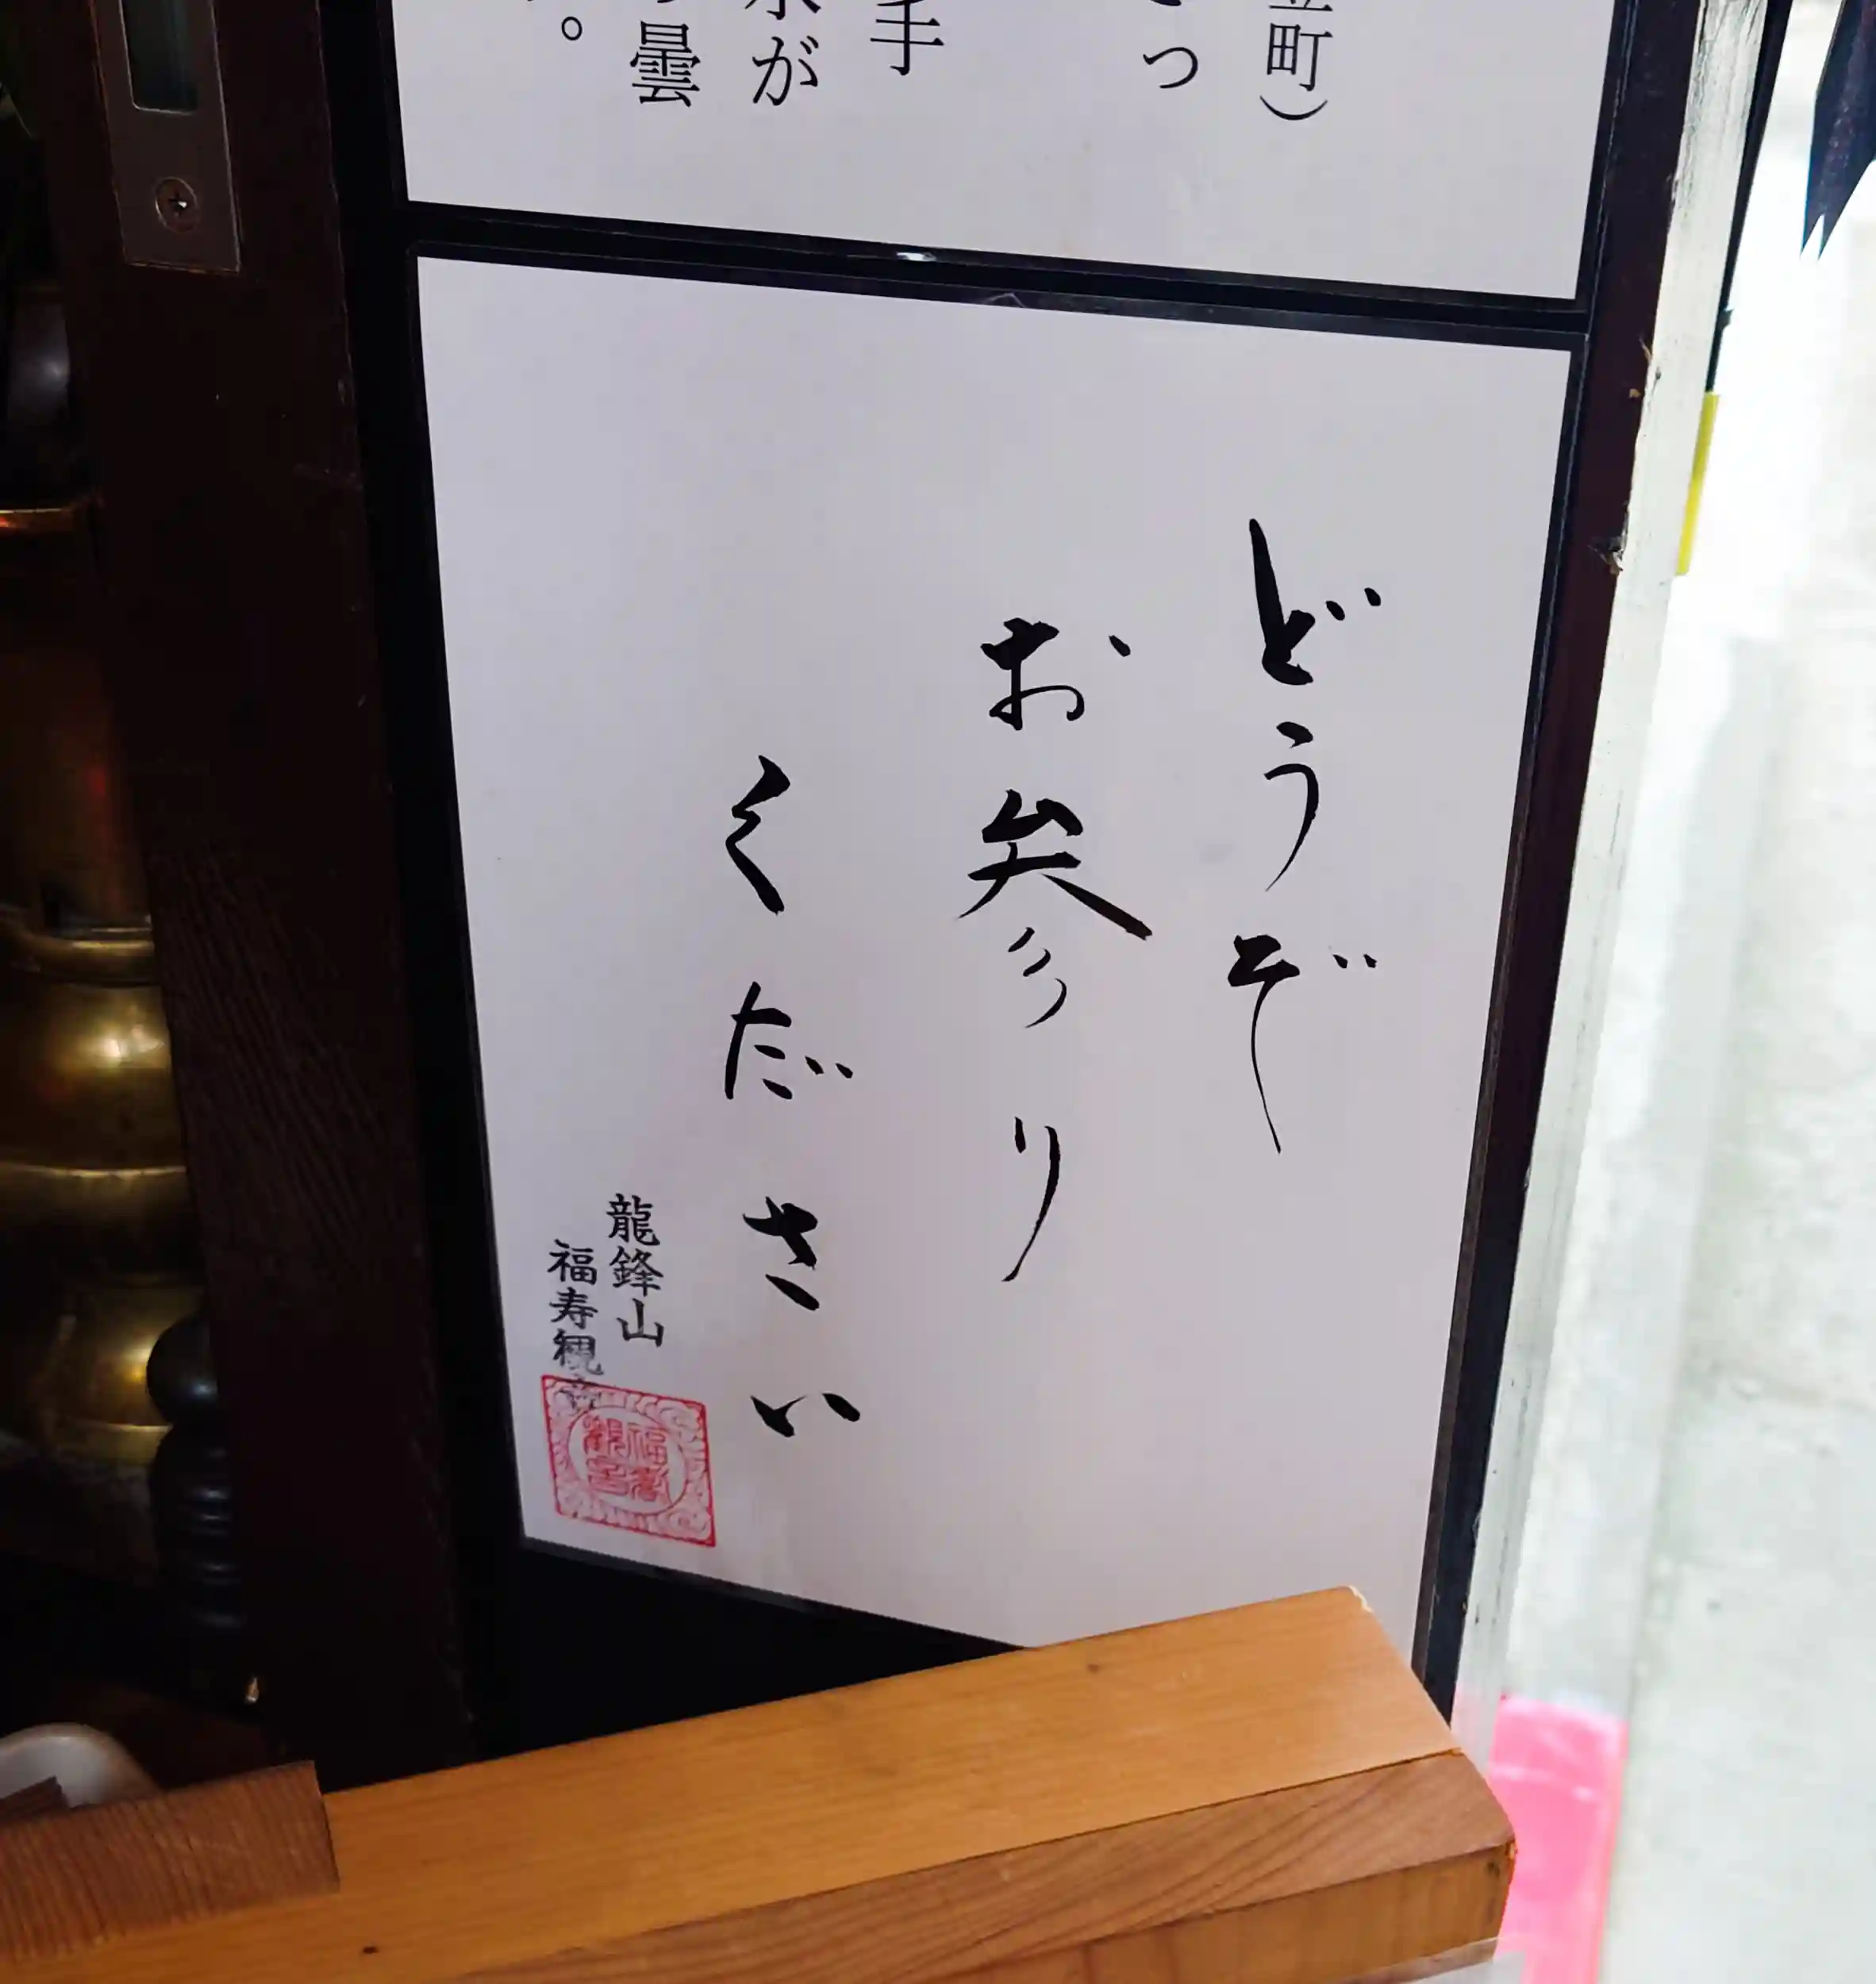 町）
っ
手
が
曇
。
どうぞ
お参り
ください
龍鋒山
福寿観音
福寿観音